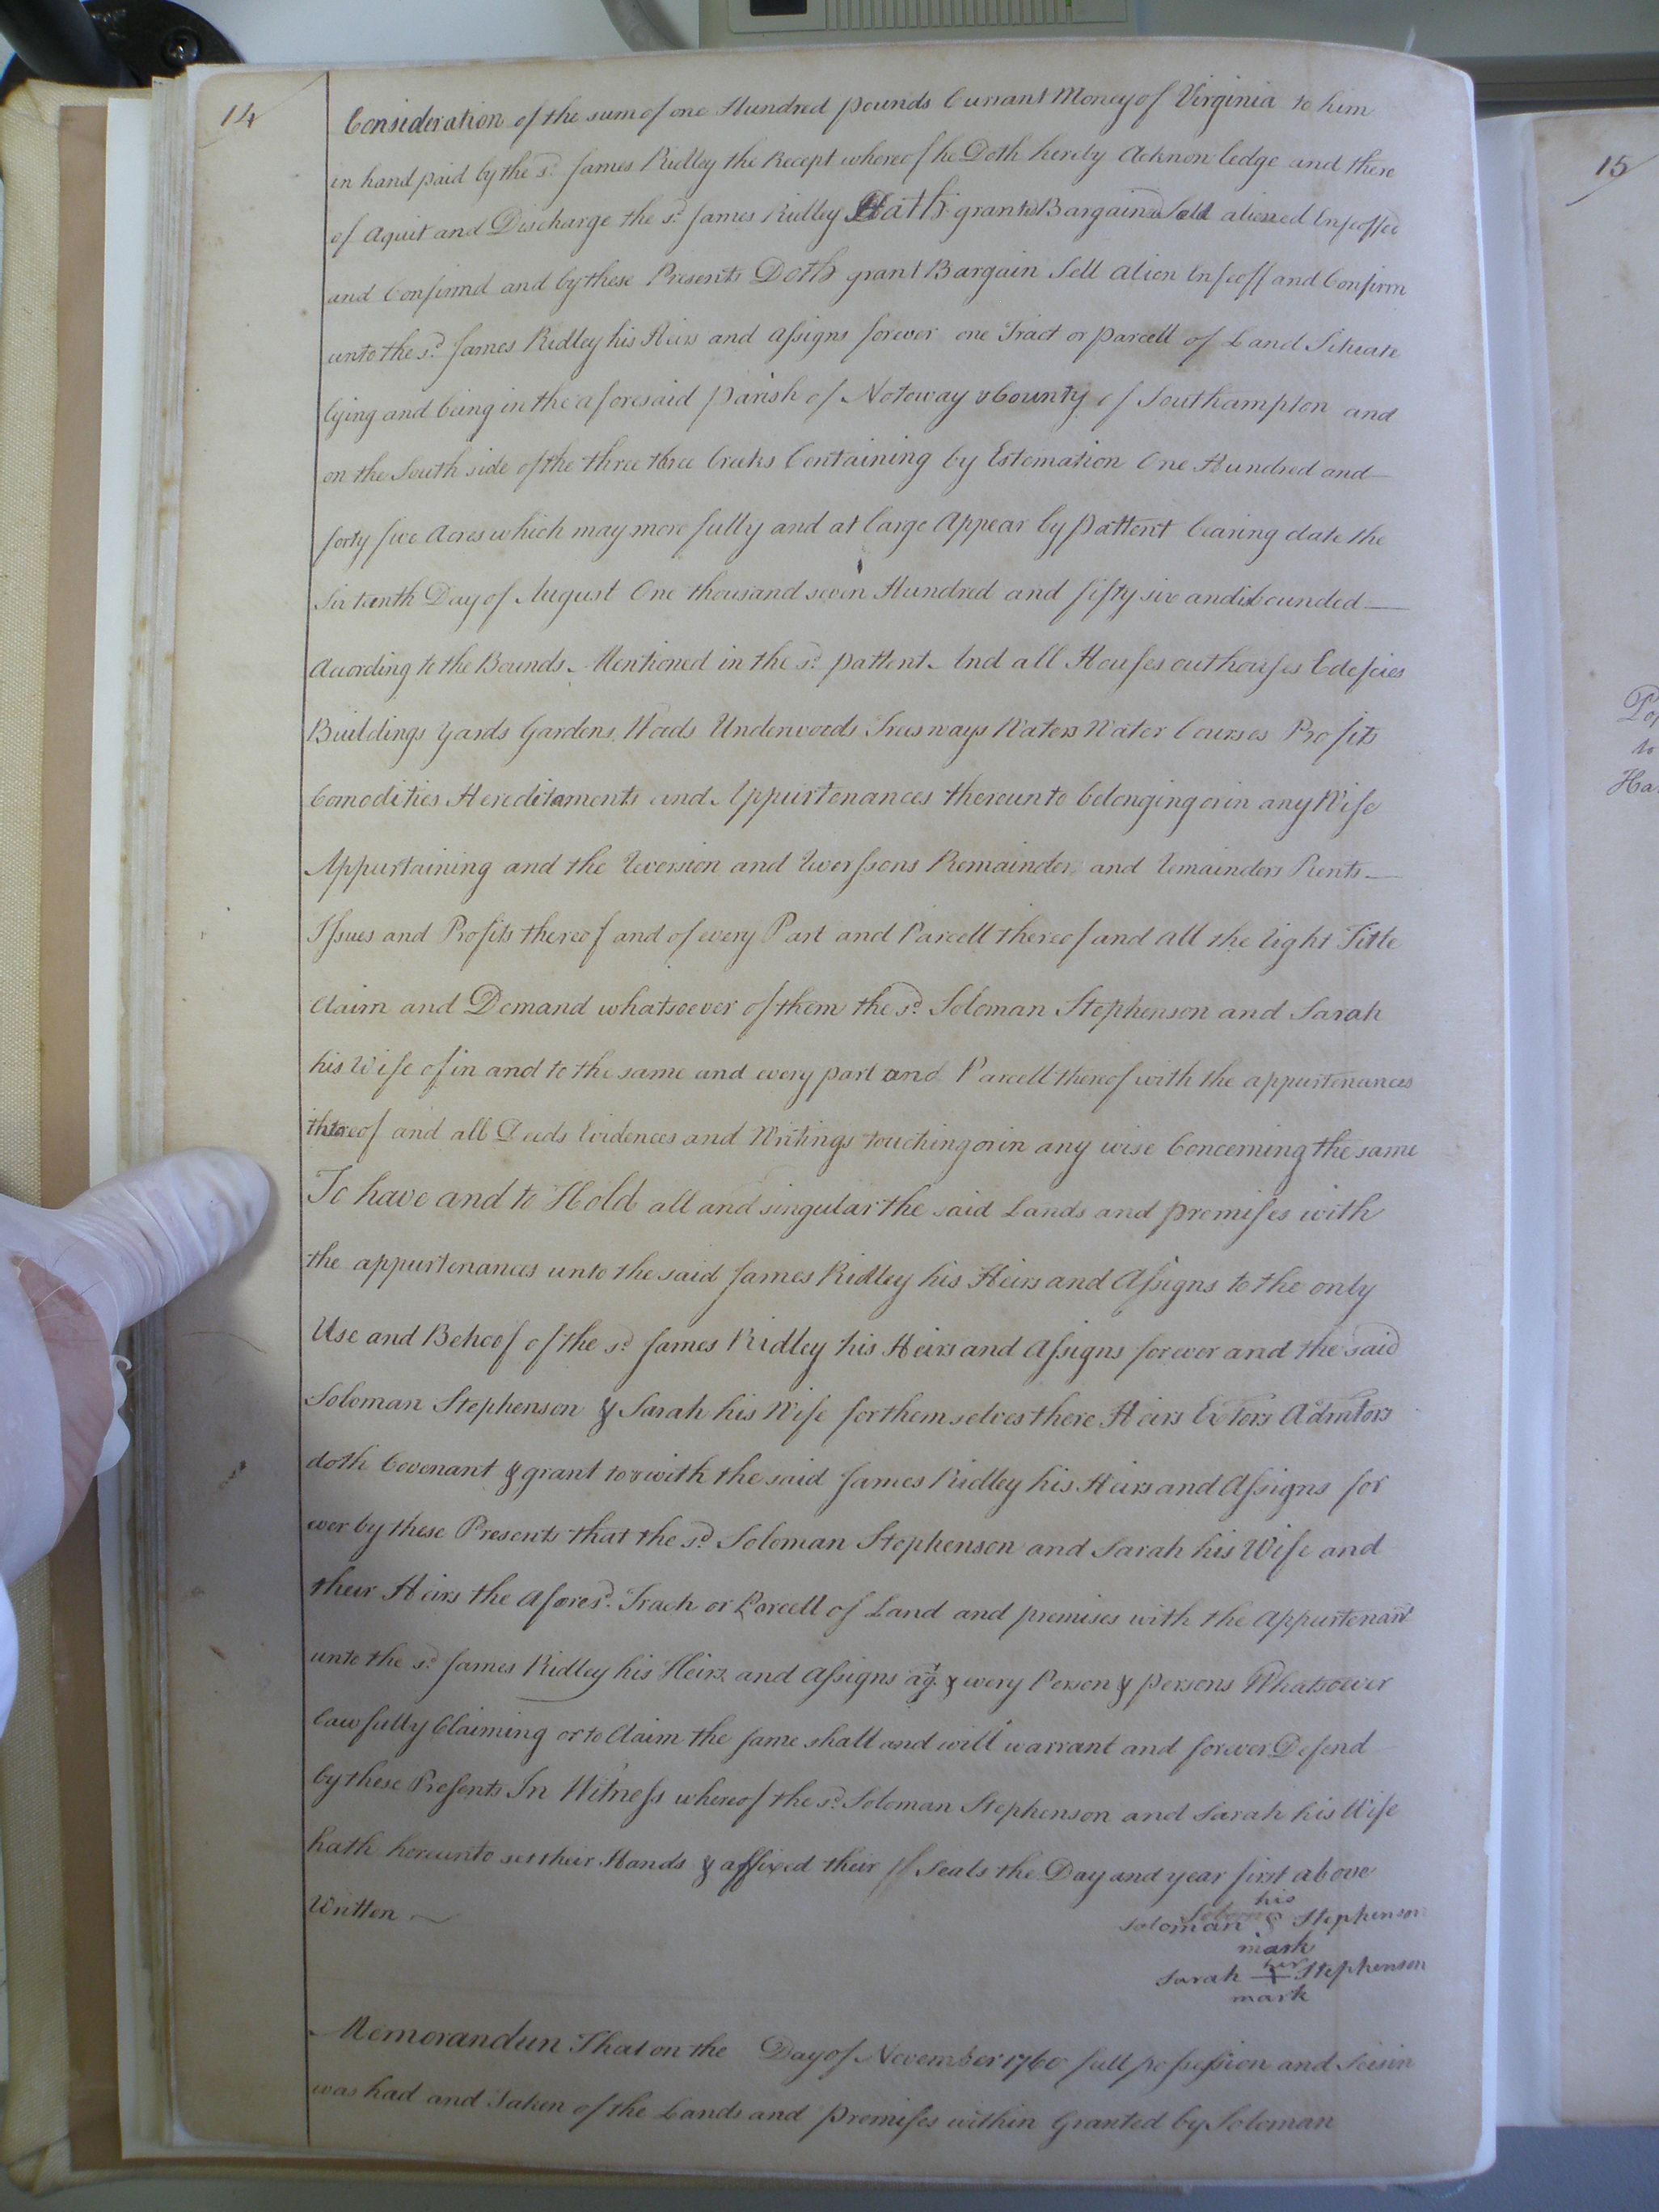 14
Consideration of the sum of one Hundred pounds Currant Money of Virginia to him
in hand paid by the sd. James Ridley the Recept whereof he Doth hereby Acknowledge and there
of Aquit and Discharge the sd. James Ridley Hath granted Bargained Sold aliened Enfeoffed
and Confirmd and by these Presents Doth grant Bargain Sell alien Enfeoff and Confirm
unto the sd. James Ridley his Heirs and Assigns forever one Tract or parcell of Land Scituate
lying and being in the aforesaid parish of Notoway & County of Southampton and
on the South side of the three three Creeks Containing by Estemation One Hundred and
forty five Acres which may more fully and at large Appear by pattent bearing date the
Sixtenth Day of August One thousand seven Hundred and fifty six and is bounded
Acording to the Bounds Mentioned in the sd. pattent And all Houses outhouses Edefcies
Buildings yards Gardens Woods Underwoods Trees ways Waters Water Courses Profits
Comodities Hereditaments and Appurtenances thereunto belonging or in any Wise
Appurtaining and the Reversion and Reverssons Remainder and Remainders Rents
Issues and Profits thereof and of every Part and Parcell thereof and all the Right Title
Claim and Demand whatsoever of them the sd. Soloman Stephenson and Sarah
his Wife of in and to the same and every part and Parcell thereof with the appurtenances
thereof and all Deeds Evidences and Writings touching or in any wise Concerning the same
To have and to Hold all and singular the said Lands and premises with
the appurtenances unto the said James Ridley his Heirs and Assigns to the only
Use and Behoof of the sd. James Ridley his Heirs and Assigns forever and the said
Soloman Stephenson & Sarah his Wife for themselves there Heirs Extors Admtors
doth Covenant & grant to & with the said James Ridley his Heirs and Assigns for
ever by these Presents that the sd. Soloman Stephenson and Sarah his Wife and
their Heirs the Aforesd. Track or Parcell of Land and premises with the Appurtenant
unto the sd. James Ridley his Heirs and Assigns agt. & every Person & persons Whatsoever
lawfully Claiming or to Claim the same shall and will warrant and forever Defend
by these Presents In Witness whereof the sd. Soloman Stephenson and Sarah his Wife
hath hereunto set their Hands & affixed their Seals the Day and year first above
Written
his
Soloman S Stephenson
mark
her
Sarah + Stephenson
mark
Memorandun That on the Day of November 1760 full possession and Seisin
was had and Taken of the Lands and premises within Granted by Soloman
15
to